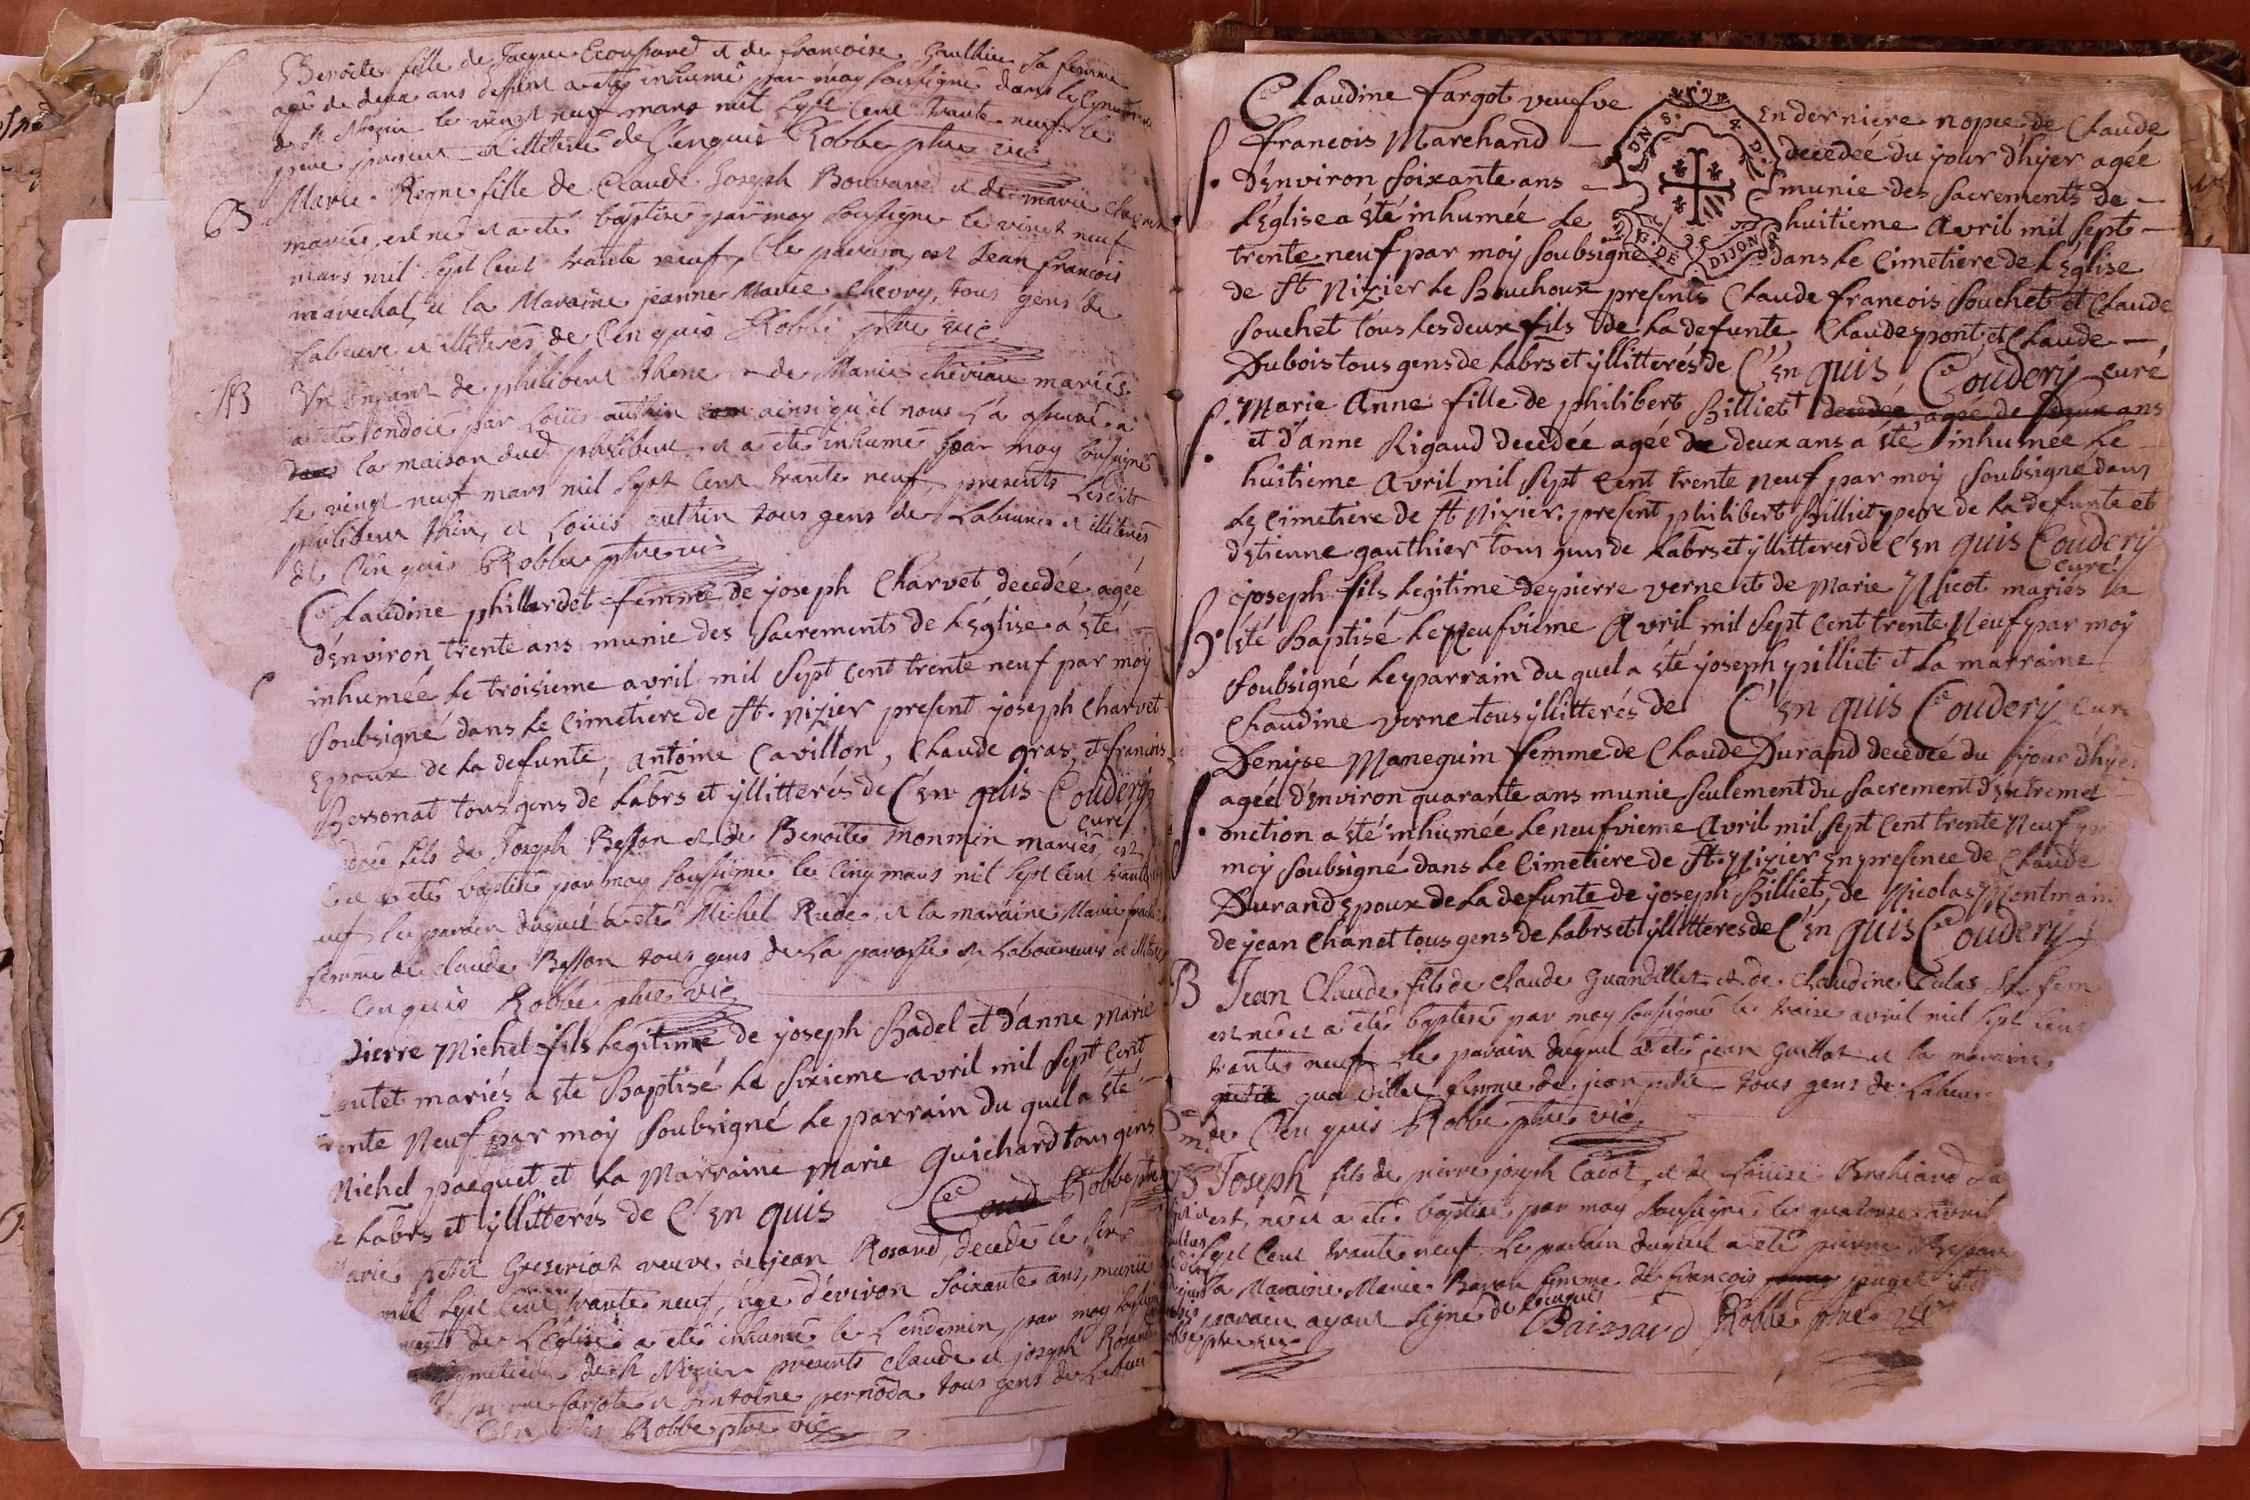 S
Benoite fille de Jacque Ecoussard et de francoise Gauthier sa femme
agé de deux ans deffunt a ety inhumé par moy soussigné dans le cymetiere
de St Nizier le vingt neuf mars mil sept cent trante neuf le
pere present illitere de c'enquis Robbe ptre vic
B
Marie Reyne fille de Claude Joseph Bouvard et de marie
mariés, est né et a eté baptisé par moy soussigné le vingt neuf
mars mil sept cent trante neuf, le parain est Jean francois
marechal, et la Maraine jeanne Marie chevry, tous gens de
Labeur et illiterés de c'enquis Robbe ptre vic
Un Enfant de philibert thene et de Marie mariés
a eté ondoié par Loüis authin ainsi qu'il nous l'a assuré a
la maison dud philibert et a eté inhumé par moy soussigné
le vingt neuf mars mil sept cent trante neuf, presents Lesdits
philibert thin, et Loüis authin tous gens de Labeur et illiterés
de c'enquis Robbe ptre vic
S
Claudine phillardet femme de joseph Charvet decedée agée
d'Environ trente ans munie des Sacrements de L'Eglise a été
inhumée Le troisieme avril mil Sept cent trente neuf par moÿ
Soubsigné dans Le Cimetiere de St. Nizier present joseph Charvet
Epoux de La defunte, antoine Cavillon, Claude gras, et francois
Bersonat tous gens dé Labrs et ÿllitterés dé C'En quis Couderÿ
curé
fils de Joseph Besson et de Benoite monmin mariés, est
a eté baptisé par moy soussigné le cinq mars mil sept cent trante
le parain duquel a eté Michel Rude, et la maraine Marie
femme de claude Besson tous gens de La paroisse de Laboureurs et
cenquis Robbe ptre vic
Pierre Michel fils Legitime de joseph Badel et d'anne Marie
mariés a eté Baptisé Le Sixieme avril mil Sept Cent
trente Neuf par moÿ Soubsigné Le parrain du quel a été
Michel pacquet et La Marraine Marie Guichard tous gens
de Labrs et ÿllitterés de C'En quis Coud Robbe ptre
Marie petit Greseriat veuve de jean Rosand, decedé le
mil sept cent trante neuf, age d'eviron soixante ans, munie
de L'Eglise a eté inhumé le Lendemin, par moy
cymetiere de St Nizier presents claude et joseph Rosand
et Antoine pernoda tous gens de Labeur
Robbe ptre vic
S.
Claudine fargot veufve En derniere nopce de Claude
francois Marchand decedée du jour d'hÿer agée
d'Environ Soixante ans munie des Sacrements de
L'Eglise a été inhumée Le huitieme Avril mil Sept
trente neuf par moÿ Soubsigné dans Le Cimetiere de L'Eglise
de St Nizier Le Bouchoux presents Claude francois Souchet et Claude
Souchet tous Les deux fils de La defunte, Claude pont et Claude
Dubois tous gens de Labrs et ÿllitterés de C'En quis, Couderÿ curé
S.
Marie Anne fille de philibert Billiet decedée agée de deux ans
et d'anne Rigaud decedée agée de deux ans a été inhumée Le
huitieme Avril mil Sept Cent trente Neuf par moÿ Soubsigné dans
Le Cimetiere de St Nizier. present philibert Billiet pere de La defunte et
d'Etienne gauthier tous gens de Labrs et ÿllitteres de C'En quis Couderÿ
curé
joseph fils Legitime de pierre verne et de Marie Nicot mariés a
Eté Baptisé Le Neufvieme Avril mil Sept Cent trente Neuf par moÿ
Soubsigné Le parrain du quel a été joseph pilliet et La marraine
Claudine verne tous ÿllitterés de C'En quis Couderÿ Curé
S.
Denise Manequin femme de Claude Durand decedée du jour d'hÿer
agée d'Environ quarante ans munie Seulement du Sacrement d'Extreme
onction a été inhumée Le neufvieme Avril mil Sept Cent trente Neuf par
moÿ Soubsigné dans Le Cimetiere de St. Nizier En presence de Claude
Durand Epoux de La defunte de joseph Billiet, de Nicolas Montmain
de jean Chanet tous gens de Labrs et ÿllitteres de C'En quis Couderÿ
B
Jean Claude fils de claude guardillet et de claudine Culas sa fem
est né et a eté baptisé par moy soussigné le traize avril mil sept cent
trante neuf le parain duquel a eté jean guillot et la maraine
femme de jean tous gens de Labeur
de C'en quis Robbe ptre vic
B
Joseph fils de pierre joseph Cadot et de Loüise Brehiard sa
est né et a eté baptisé par moy soussigné le quatorze avril
sept cent trante neuf le parain duquel a eté pierre
la Maraine Marie Bayon femme de francois puget
parain ayant signé de c'enquis
Baissard Robbe ptre vic
DIJON